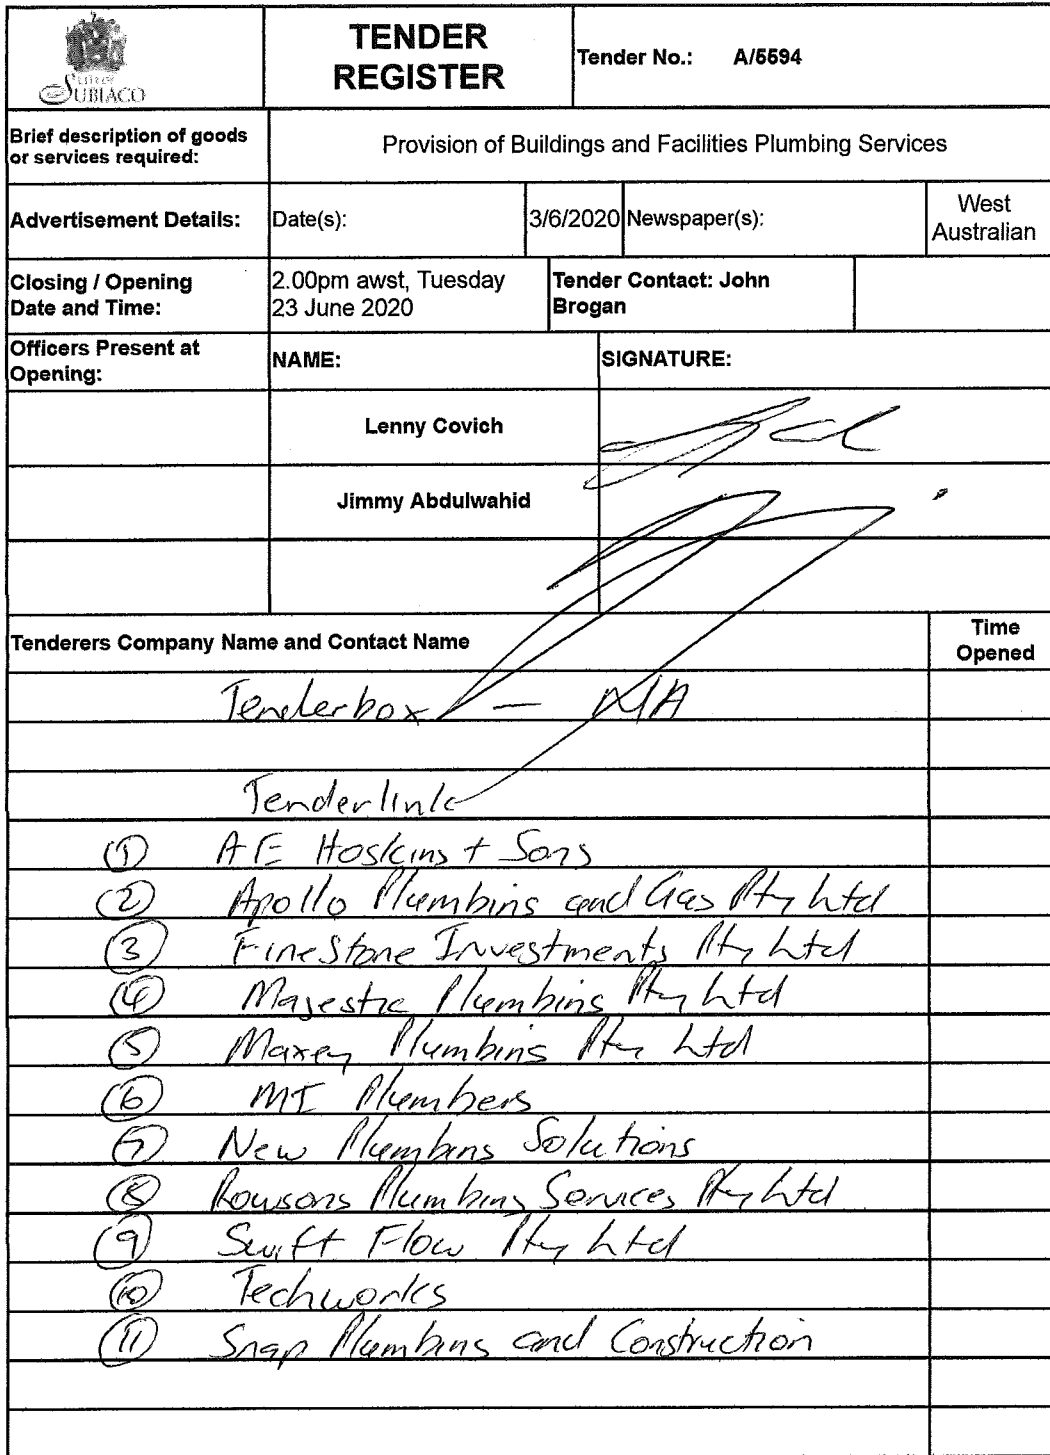 City of
SUBIACO
TENDER
REGISTER
Tender No.: A/5594
Brief description of goods
or services required:
Provision of Buildings and Facilities Plumbing Services
Advertisement Details:
Date(s):
3/6/2020
Newspaper(s):
West
Australian
Closing / Opening
Date and Time:
2.00pm awst, Tuesday
23 June 2020
Tender Contact: John
Brogan
Officers Present at
Opening:
NAME:
SIGNATURE:
Lenny Covich
Jimmy Abdulwahid
Tenderers Company Name and Contact Name
Time
Opened
Tenderbox — N/A
Tenderlink
① AE Hoskins + Sons
② Apollo Plumbing and Gas Pty Ltd
③ FineStone Investments Pty Ltd
④ Majestic Plumbing Pty Ltd
⑤ Maxey Plumbing Pty Ltd
⑥ MI Plumbers
⑦ New Plumbing Solutions
⑧ Rowsons Plumbing Services Pty Ltd
⑨ Swift Flow Pty Ltd
⑩ Techworks
⑪ Snap Plumbing and Construction